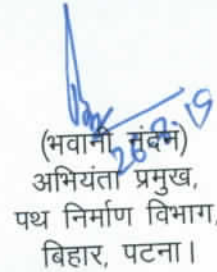 26.8.19
(भवानी नंदन)
अभियंता प्रमुख,
पथ निर्माण विभाग,
बिहार, पटना।